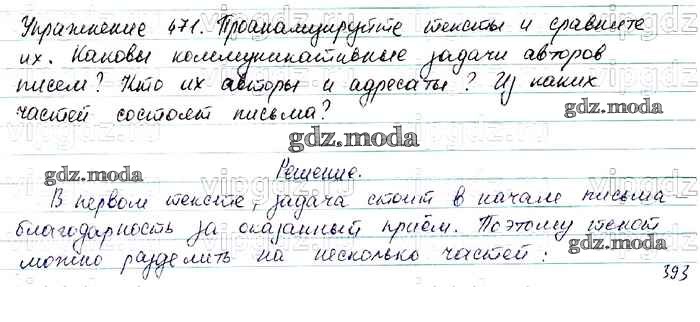 Упражнение 471. Проанализируйте тексты и сравните
их. Каковы коммуникативные задачи авторов
писем? Кто их авторы и адресаты? Из каких
частей состоят письма?
gdz.moda
gdz.moda
Решение.
В первом тексте, задача стоит в начале письма
благодарность за оказанный приём. Поэтому текст
можно разделить на несколько частей:
gdz.moda
gdz.moda
393